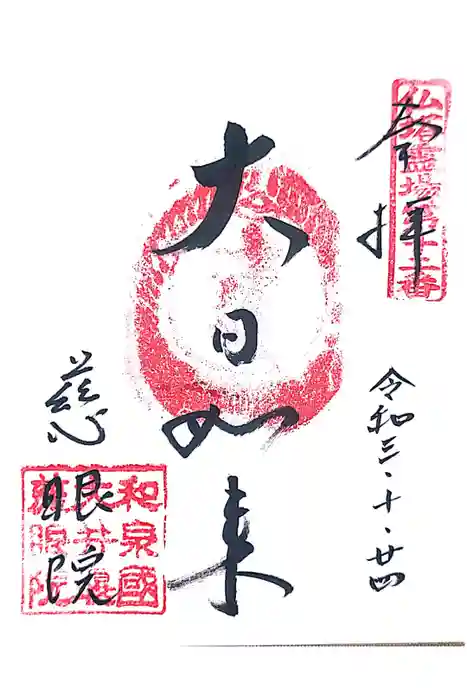 奉拝
令和三・十・廿四
大日如来
慈眼院
和泉國
慈眼院